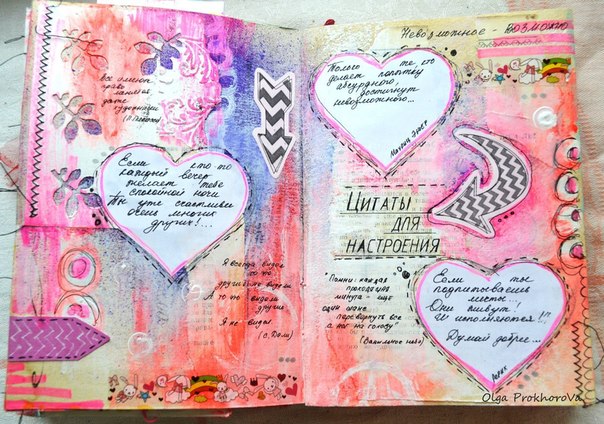 Все имеют
право
даже
художники
Если кто-то
каждый вечер
желает тебе
спокойной ночи
Ты уже счастливее
очень многих
других!...
Я всегда видел
то что
другие не видел
А то что видели
другие
Я не видел
(С. Дали)
Невозможное - возможно
Только те, кто
делает попытку
абсурдную,
достигнут
невозможного...
Мориц Эшер
Цитаты
для
настроения
"Помни: каждая
проходящая
минута - еще
один шанс
перевернуть все
с ног на голову"
(Ванильное небо)
Если ты
подпитываешь
мечты...,
Они живут!
И исполняются!!
Думай добрее...
Рерих
Olga Prokhorova